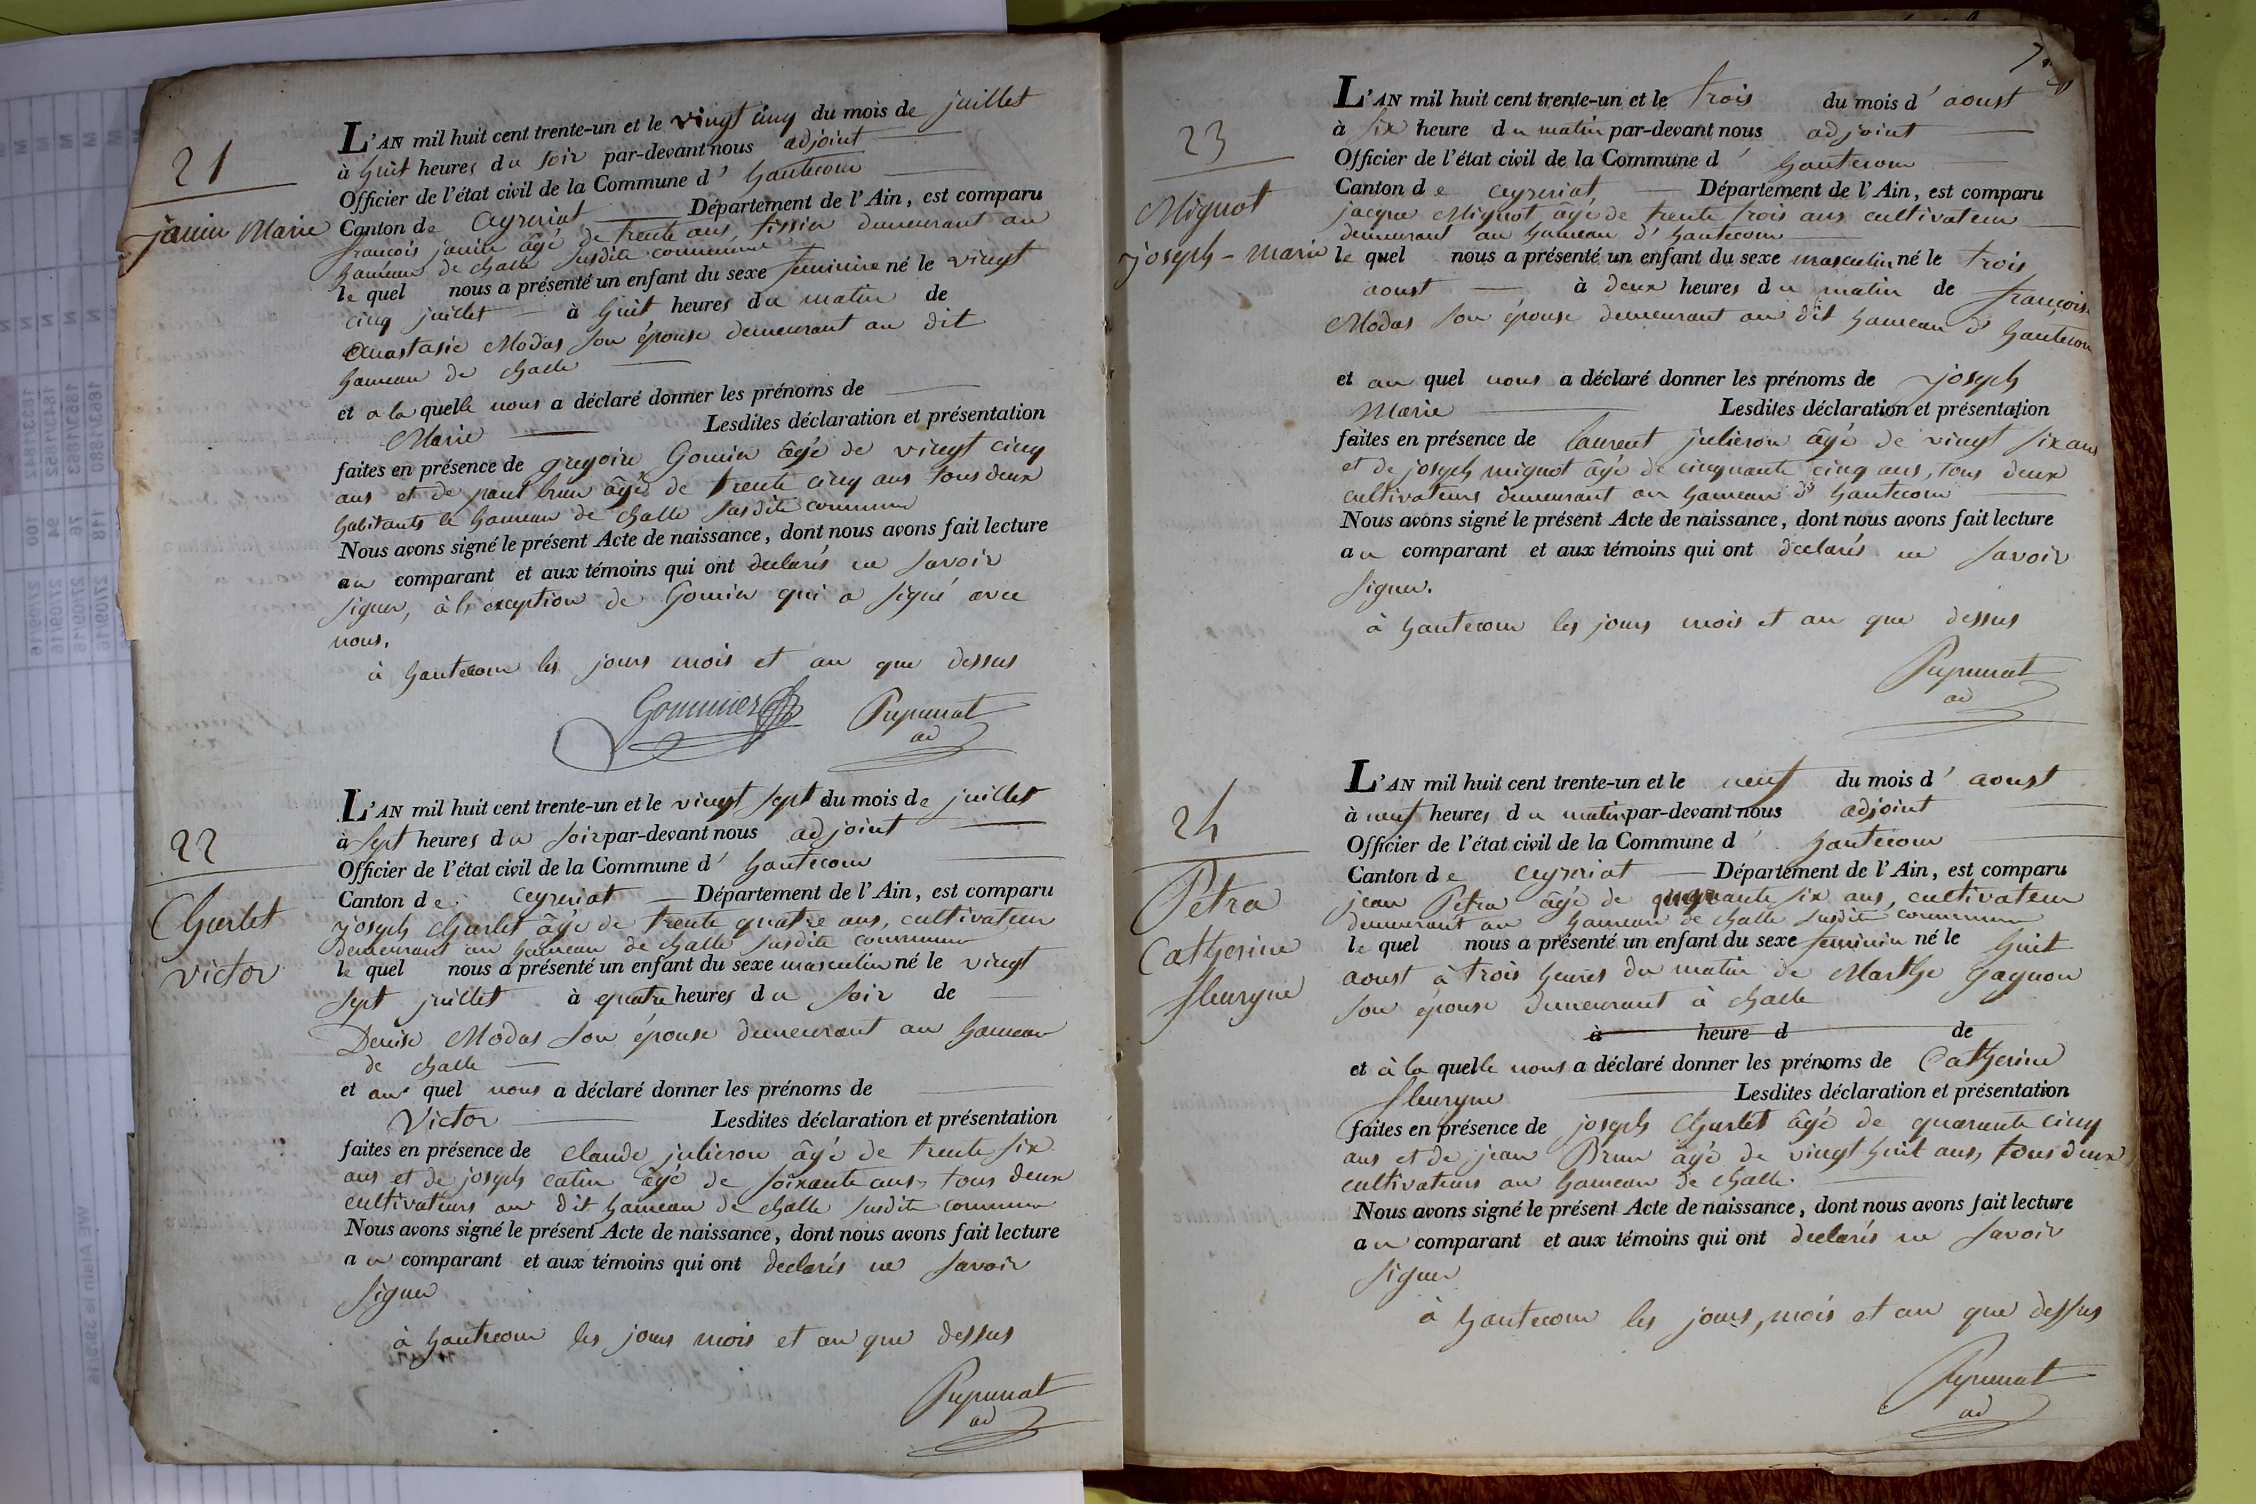 21
janin Marie
L'AN mil huit cent trente-un et le vingt cinq du mois de juillet
à huit heures du soir par-devant nous adjoint
Officier de l'état civil de la Commune d' hautecour
Canton de Ceyzeriat Département de l'Ain, est comparu
françois janin âgé de trente ans tissier demeurant au
hameau de challe susdite commune
le quel nous a présenté un enfant du sexe feminine né le vingt
cinq juillet à huit heures du matin de
anastasie Modas son épouse demeurant au dit
hameau de challe
et a la quelle nous a déclaré donner les prénoms de
Marie Lesdites déclaration et présentation
faites en présence de gregoire Gomier âgé de vingt cinq
ans et de paul brun âgé de trente cinq ans tous deux
habitants le hameau de challe susdite commune
Nous avons signé le présent Acte de naissance, dont nous avons fait lecture
au comparant et aux témoins qui ont declarés ne savoir
signer, à l'exception de Gomier qui a signé avec
nous.
à hautecour les jours mois et an que dessus
Gommier Pupunat
ad
22
Charlet
victor
L'AN mil huit cent trente-un et le vingt sept du mois de juillet
à sept heures du soir par-devant nous adjoint
Officier de l'état civil de la Commune d' hautecour
Canton de Ceyzeriat Département de l'Ain, est comparu
joseph charlet âgé de trente quatre ans, cultivateur
demeurant au hameau de challe susdite commune
le quel nous a présenté un enfant du sexe masculin né le vingt
sept juillet à quatre heures du soir de
Denise Modas son épouse demeurant au hameau
de challe
et au quel nous a déclaré donner les prénoms de
Victor Lesdites déclaration et présentation
faites en présence de claude julieron âgé de trente six
ans et de joseph catin âgé de soixante ans, tous deux
cultivateurs au dit hameau de challe susdite commune
Nous avons signé le présent Acte de naissance, dont nous avons fait lecture
au comparant et aux témoins qui ont declarés ne savoir
signer
à hautecour les jours mois et an que dessus
Pupunat
ad
23
Mignot
joseph-marie
L'AN mil huit cent trente-un et le trois du mois d' aoust
à six heure du matin par-devant nous adjoint
Officier de l'état civil de la Commune d' hautecour
Canton de Ceyzeriat Département de l'Ain, est comparu
jacque Mignot âgé de trente trois ans cultivateur
demeurant au hameau d'hautecour
le quel nous a présenté un enfant du sexe masculin né le trois
aoust à deux heures du matin de françoise
Modas son épouse demeurant au dit hameau d'hautecour
et au quel nous a déclaré donner les prénoms de joseph
Marie Lesdites déclaration et présentation
faites en présence de laurent julieron âgé de vingt six ans
et de joseph mignot âgé de cinquante cinq ans, tous deux
cultivateurs demeurant au hameau d'hautecour
Nous avons signé le présent Acte de naissance, dont nous avons fait lecture
au comparant et aux témoins qui ont declarés ne savoir
signer.
à hautecour les jours mois et an que dessus
Pupunat
ad
24
Petra
Catherine
fleuryne
L'AN mil huit cent trente-un et le neuf du mois d' aoust
à neuf heures du matin par-devant nous adjoint
Officier de l'état civil de la Commune d' hautecour
Canton de Ceyzeriat Département de l'Ain, est comparu
jean Petra âgé de six ans, cultivateur
demeurant au hameau de challe susdite commune
le quel nous a présenté un enfant du sexe feminin né le huit
aoust à trois heures du matin de Marthe Gagnon
son épouse demeurant à challe
à heure d de
et à la quelle nous a déclaré donner les prénoms de Catherine
fleuryne Lesdites déclaration et présentation
faites en présence de joseph Charlet âgé de quarante cinq
ans et de jean Brun âgé de vingt huit ans, tous deux
cultivateurs au hameau de challe.
Nous avons signé le présent Acte de naissance, dont nous avons fait lecture
au comparant et aux témoins qui ont declarés ne savoir
signer
à hautecour les jours, mois et an que dessus
Pupunat
ad